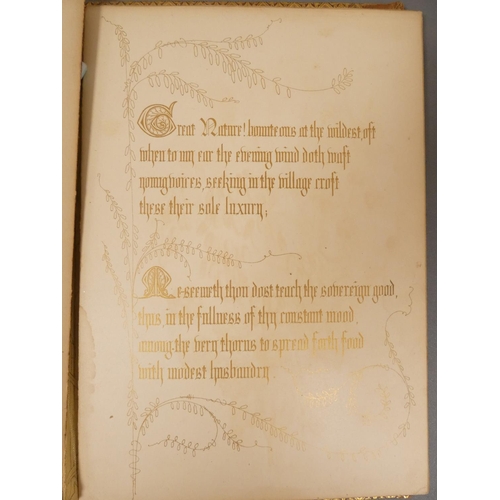 Great Nature! bounteous at the wildest, oft
when to my ear the evening wind doth waft
young voices, seeking in the village croft
these their sole luxury;
Me-seemeth thou dost teach the sovereign good,
this, in the fullness of thy constant mood,
among the very thorns to spread forth food
with modest husbandry.